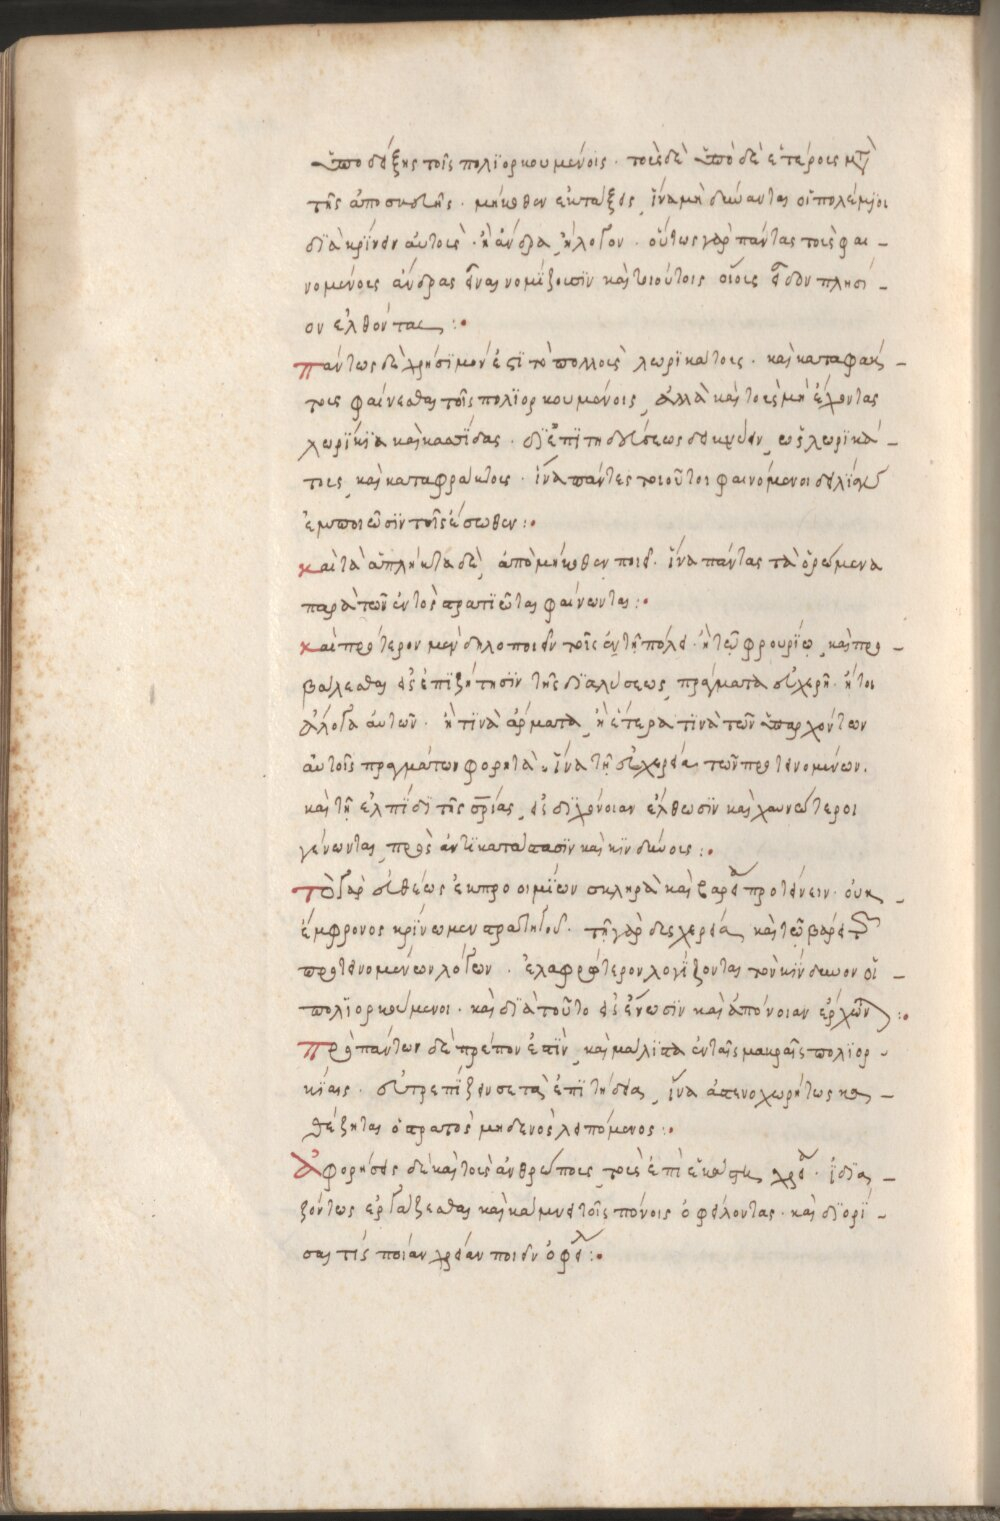 ὑποδείξης τοῖς πολιορκουμένοις. τοὺς δὲ ὑποδεεστέρους μετὰ
τῆς ἀποσκευῆς. μήκωθεν ἐκτάξεις, ἵνα μὴ δύνανται οἱ πολέμιοι
διακρίνειν αὐτοὺς. ἢ ἄνδρα, ἢ ἄλογον. οὕτως γὰρ πάντας τοὺς φαι-
νομένους ἄνδρας εἶναι νομίζουσιν καὶ τοιούτους οἵους εἶδον πλησί-
ον ἐλθόντας :•
πάντως δὲ χρήσιμόν ἐστι τὸ πολλοὺς λωρικάτους. καὶ καταφάκ-
τους φαίνεσθαι τοῖς πολιορκουμένοις, ἀλλὰ καὶ τοὺς μὴ ἔχοντας
λωρίκια καὶ κασσίδας. δι' ἐπιτηδεύσεως δεικνύειν, ὡς λωρικά-
τους, καὶ καταφράκτους. ἵνα πάντες τοιοῦτοι φαινόμενοι δειλίαν
ἐμποιῶσιν τοῖς ἔσωθεν :•
καὶ τὰ ἄπληκτα δὲ, ἀπὸ μήκωθεν ποιεῖ. ἵνα πάντας τὰ ὁρώμενα
παρὰ τῶν ἐντὸς στρατιῶται φαίνωνται :•
καὶ πρότερον μὲν δηλοποιεῖν τοῖς ἐν τῇ πόλει. ἢ τῷ φρουρίῳ, καὶ προ-
βάλεσθαι εἰς ἐπιζήτησιν τῆς διαλύσεως, πράγματα εὐχερῆ. ἤτοι
ἄλογα αὐτῶν. ἢ τινὰ ἄρματα, ἢ ἕτερα τινὰ τῶν ὑπαρχόντων
αὐτοῖς πραγμάτων φορητὰ. ἵνα τῇ εὐχερείᾳ τῶν προτεινομένων.
καὶ τῇ ἐλπίδι τῆς σ(ωτη)ρίας, εἰς διχόνοιαν ἔλθωσιν καὶ χαυνώτεροι
γένωνται, πρὸς ἀντικατάστασιν καὶ κινδύνους :•
τὸ γὰρ εὐθέως ἐκ προοιμίων σκληρὰ καὶ βαρέα προτείνειν. οὐκ
ἔμφρονος κρίνωμεν στρατηγοῦ. τῇ γὰρ δυσχερείᾳ καὶ τῷ βάρει τῶν
προτεινομένων λόγων. ἐλαφρότερον λογίζονται τὸν κίνδυνον οἱ
πολιορκούμενοι. καὶ διὰ τοῦτο εἰς ἕνωσιν καὶ ἀπόνοιαν ἔρχονται :•
πρὸ πάντων δὲ πρέπον ἐστὶν, καὶ μάλιστα ἐν ταῖς μακραῖς πολιορ-
κίαις. εὐτρεπίζειν σε τὰ ἐπιτήδεια, ἵνα ἀστενοχωρήτως κα-
θέζηται ὁ στρατὸς μηδενὸς λειπόμενος :•
ἀφορήσεις δὲ καὶ τοὺς ἀνθρώπους, τοὺς ἐπὶ ἑκάστης χρείας. ἰδια-
ζόντως ἐργάζεσθαι καὶ κάμνειν τοῖς πόνοις ὀφείλοντας. καὶ διορί-
σαι τίς ποίαν χρείαν ποιεῖν ὀφείλει :•